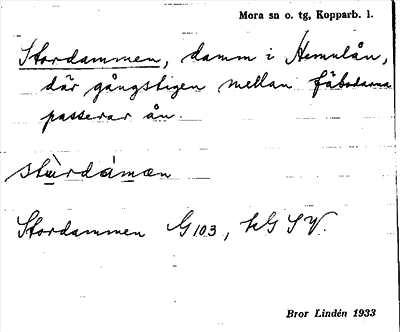 Mora sn o. tg, Kopparb. l.
Stordammen, damm i Hemulån,
där gångstigen mellan fäbodarna
passerar ån.
stùrdámæn
Stordammen G103, kG SV.
Bror Lindén 1933